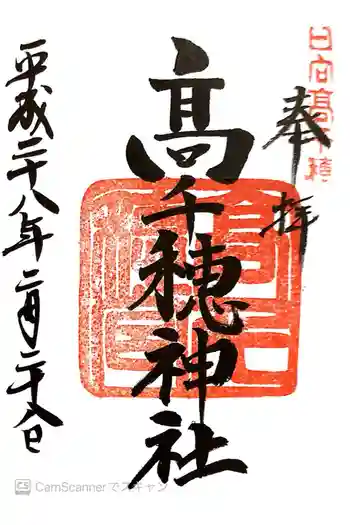 日向高千穂
奉拝
高千穂神社
平成二十八年二月二十八日
CamScannerでスキャン